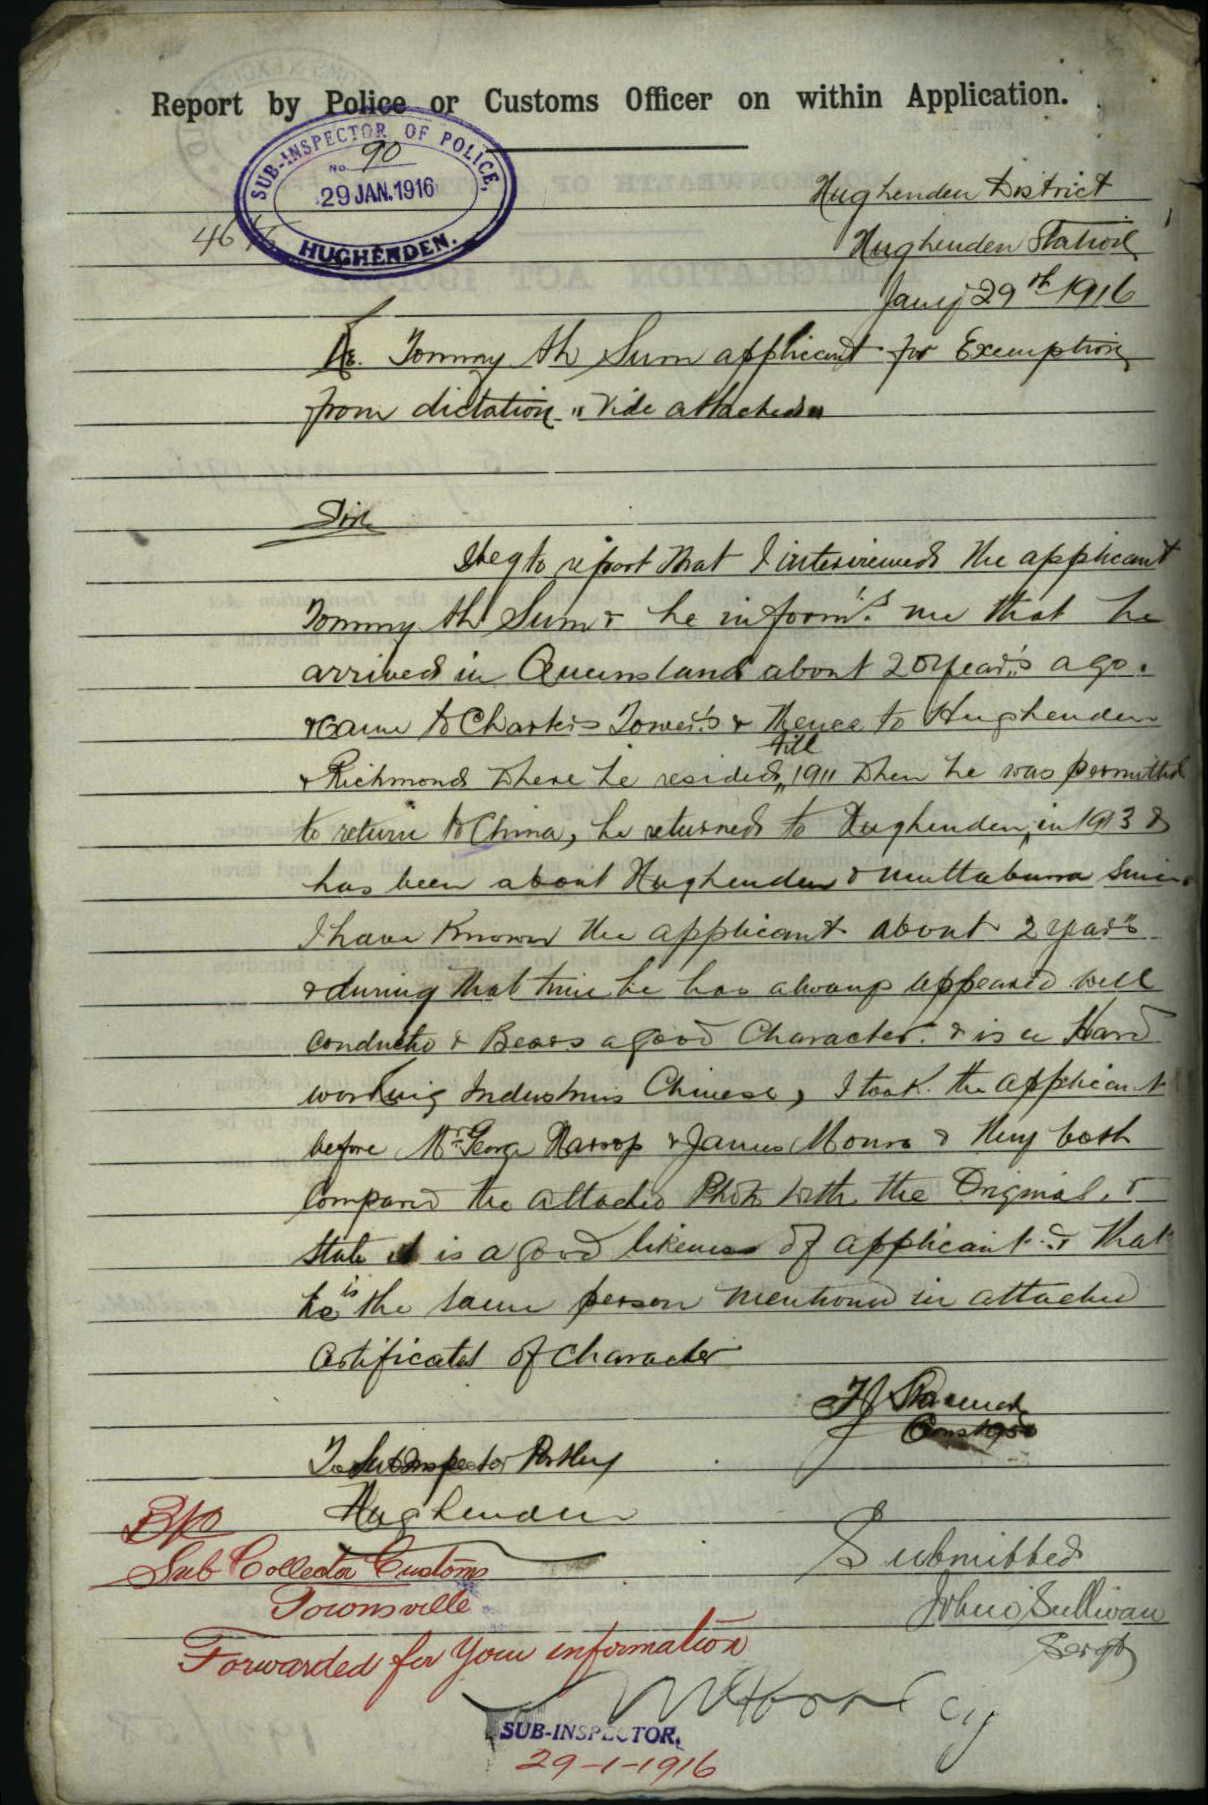 Report by Police or Customs Officer on within Application.
SUB-INSPECTOR OF POLICE,
No. 90
29 JAN. 1916
HUGHENDEN.
Hughenden District
Hughenden Station
Jany 29th 1916
Re. Tommy Ah Sum applicant for Exemption
from dictation "Vide attached"
Sir
I beg to report that I interviewed the applicant
Tommy Ah Sum & he inform'd me that he
arrived in Queensland about 20 years ago.
& came to Charters Towers & thence to Hughenden
& Richmond where he resided till 1911 when he was permitted
to return to China, he returned to Hughenden, in 1913 &
has been about Hughenden & Muttaburra Since
I have Known the applicant about 2 years
& during that time he has always appeared well
conducted & Bears a good Character. & is a Hard
working Industrius Chinese, I took the applicant
before Mr George Harrop & James Monro & they both
Compared the attached Photo with the Original, &
State it is a good likeness of applicant & that
he is the same person mentioned in attached
Certificates of Character
Const
To Sub Inspector
Hughenden
Sub Collector Customs
Townsville
Submitted
John O'Sullivan
Sergt
Forwarded for your information
SUB-INSPECTOR,
29-1-1916